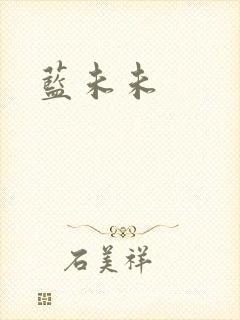 藍未未
石美祥